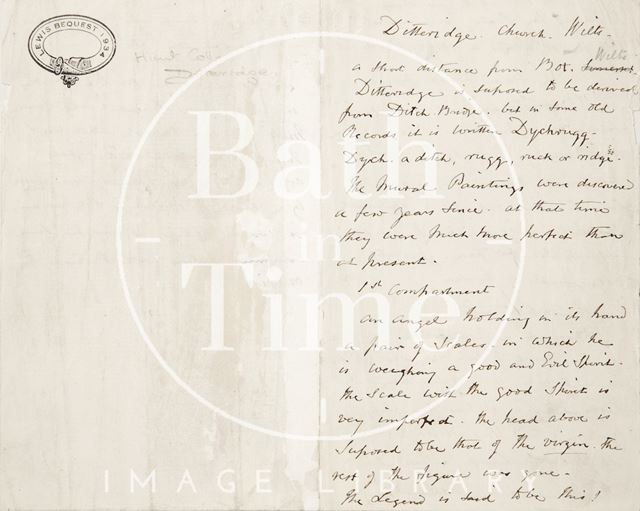 LEWIS BEQUEST 1934
Ditteridge
Ditteridge. Church. Wilts.
Wilts
a short distance from Box. Somerset
Ditteridge is suposed to be derived
from Ditch Bridge. but in some old
Records it is written Dychrugg-
Dych. a ditch, rugg, ruck or ridge.
The Mural Paintings were discovered
a few years since. at that time
they were much more perfect than
at present.
1st Compartment
an angel holding in its hand
a pair of Scales. in which he
is weighing a good and Evil Spirit.
the scale with the good Spirit is
very imperfect. the head above is
suposed to be that of the virgin. the
rest of the figure is gone.
the Legend is said to be this!
Bath
in
Time
IMAGE LIBRARY